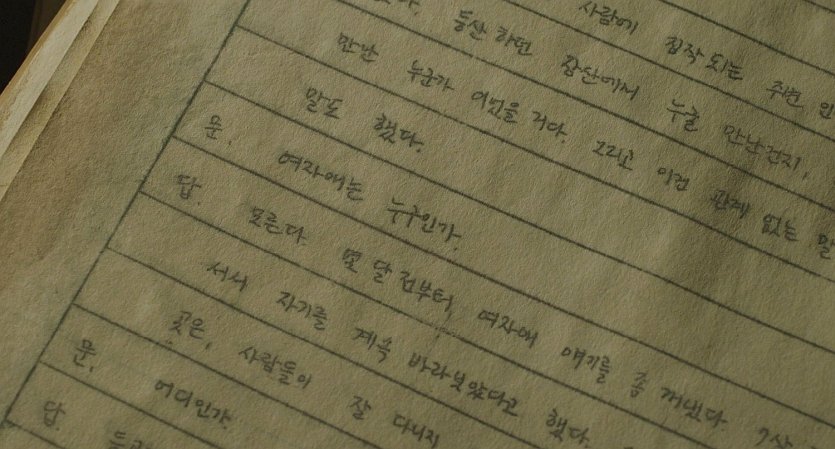 사람에 짐작 되는 주변 인
다. 등산 하던 장단에서 누굴 만난건지,
만난 누군가 이었을 거다. 그리고 이건 관계 없는 말
말도 했다.
문. 여자애는 누구인가.
답. 모른다. 몇 달 전부터, 여자애 얘기를 좀 꺼냈다.
서서 자기를 계속 바라보았다고 했다.
문. 곳은, 사람들이 잘 다니지
어디인가.
답.